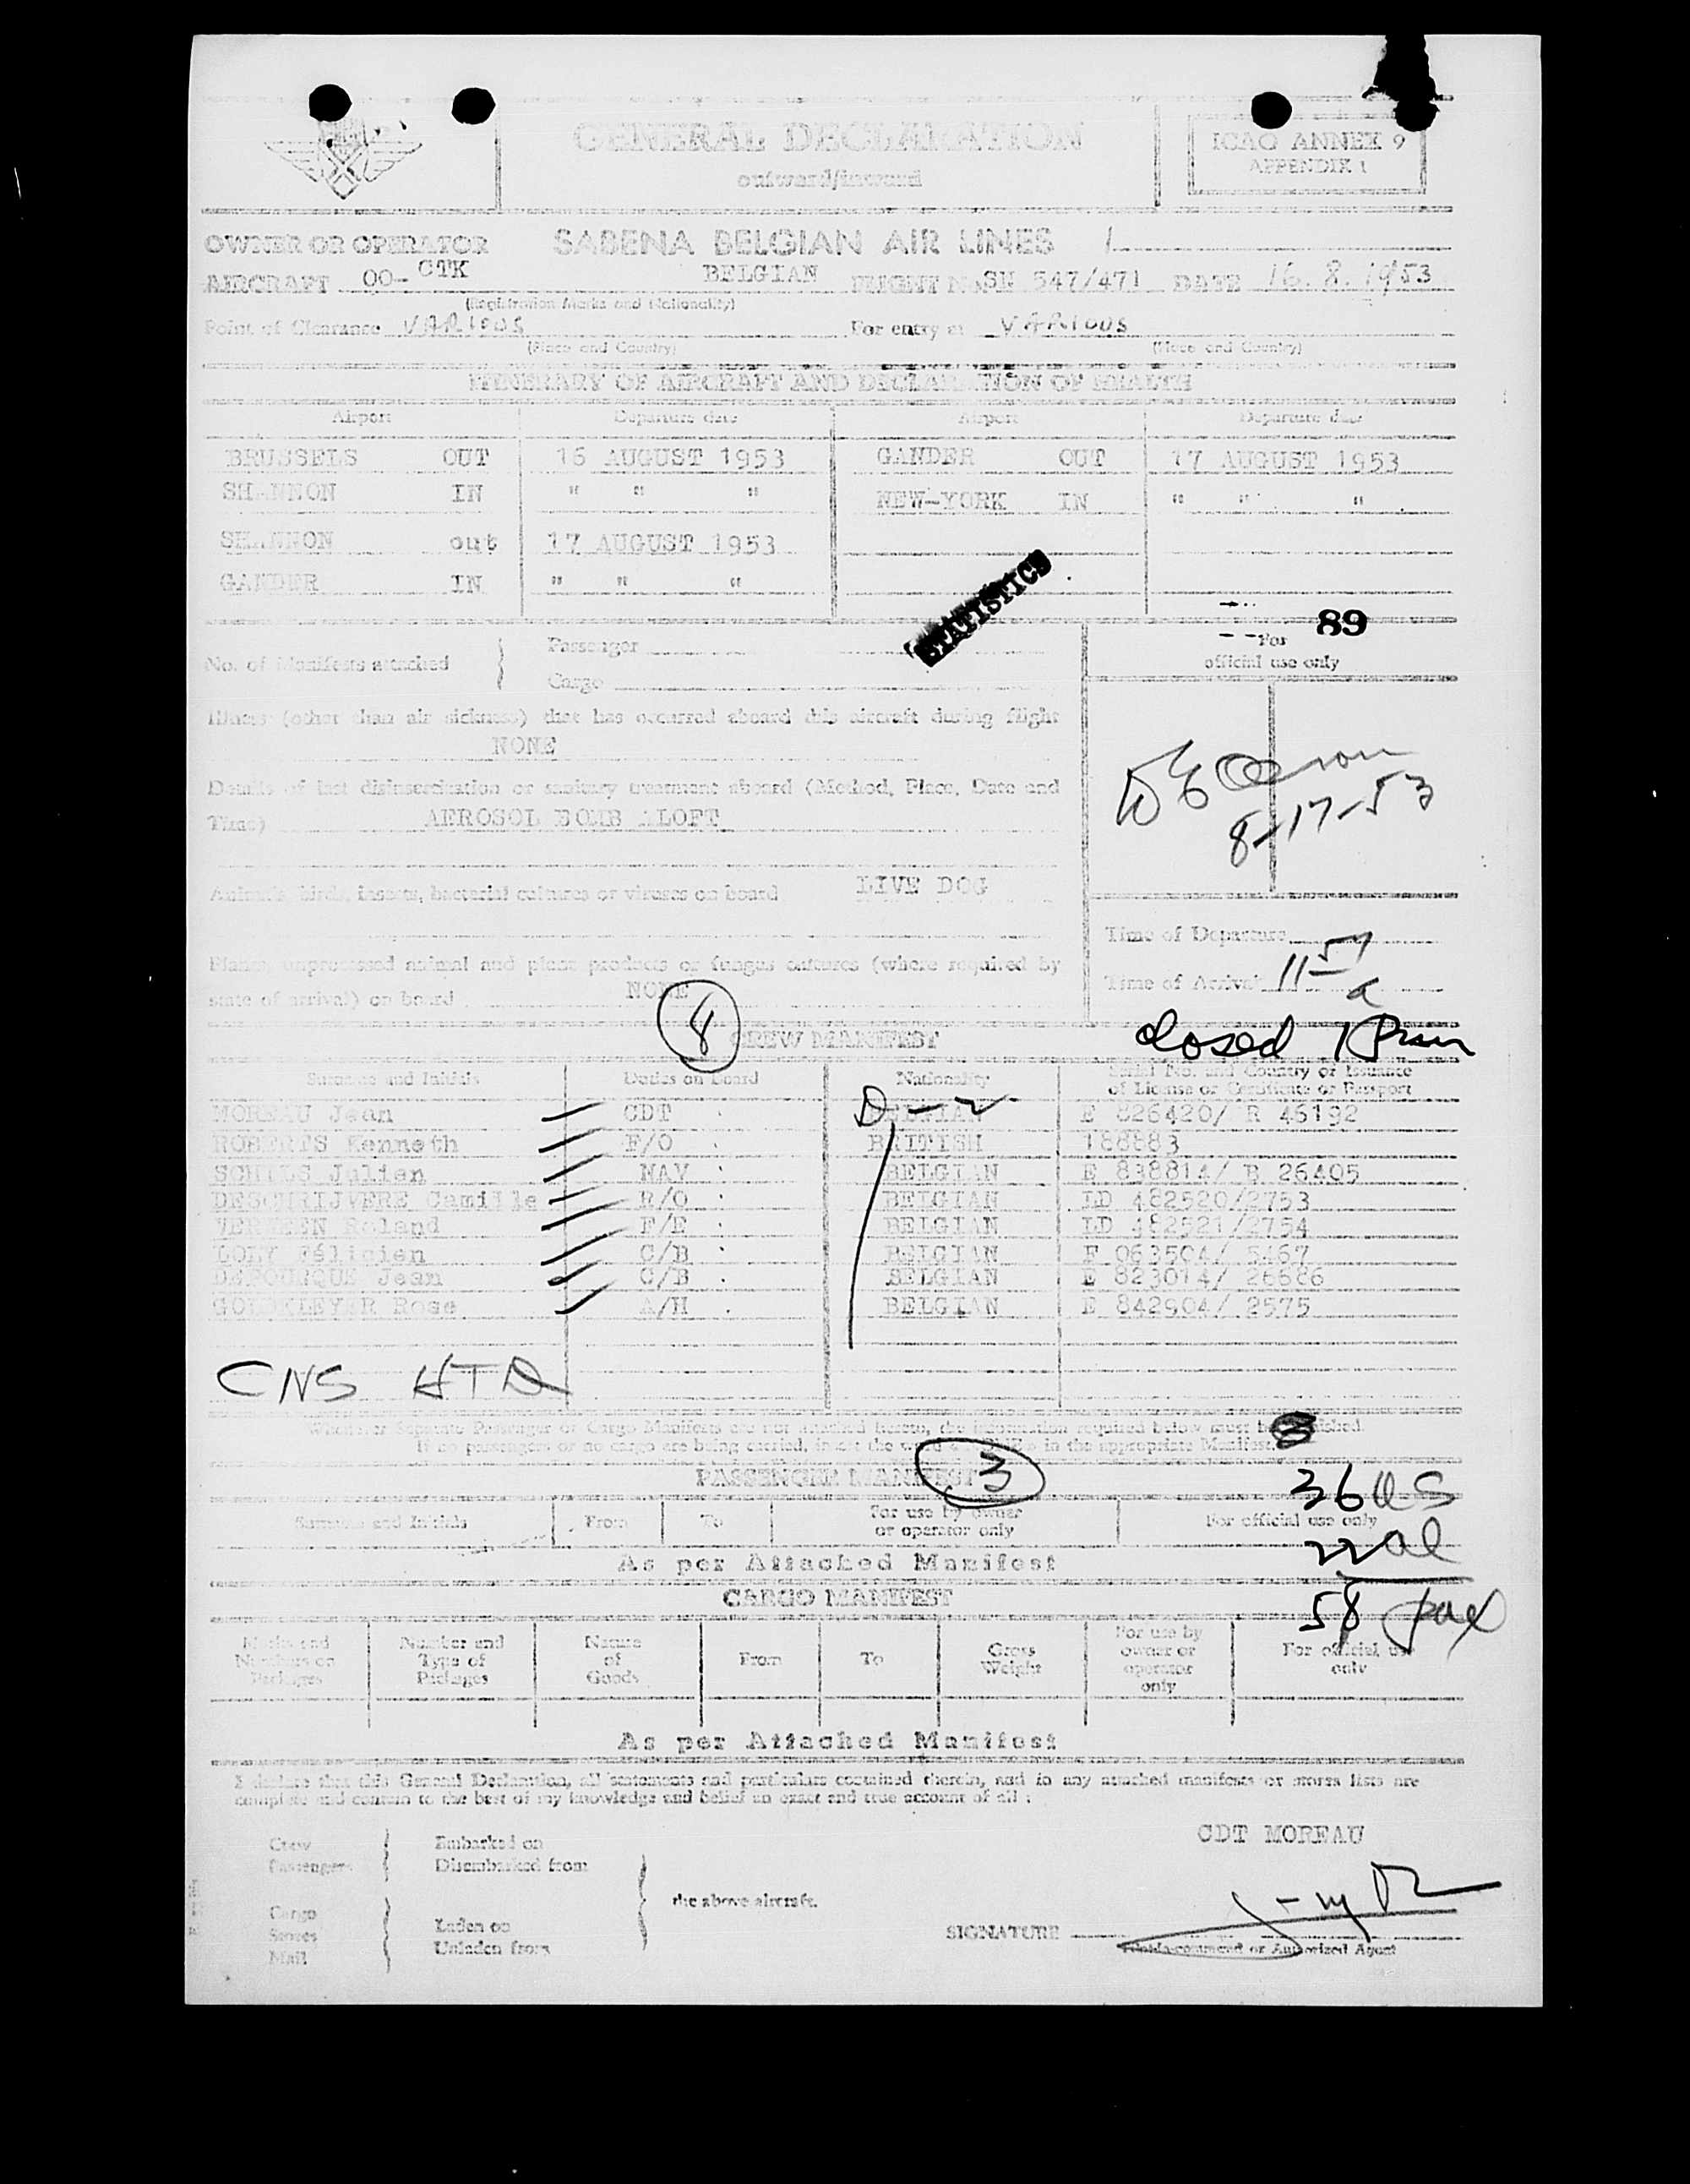 GENERAL DECLARATION
outward/inward
ICAO ANNEX 9
APPENDIX 1
OWNER OR OPERATOR SABENA BELGIAN AIR LINES /
AIRCRAFT OO-CTK BELGIAN FLIGHT No. SN 547/471 DATE 16.8.1953
(Registration Marks and Nationality)
Point of Clearance VARIOUS For entry at VARIOUS
(Place and Country) (Place and Country)
ITINERARY OF AIRCRAFT AND DECLARATION OF HEALTH
Airport Departure date Airport Departure date
BRUSSELS OUT 16 AUGUST 1953 GANDER OUT 17 AUGUST 1953
SHANNON IN " " " NEW-YORK IN " " "
SHANNON out 17 AUGUST 1953
GANDER IN " " "
STATISTICS
89
No. of Manifests attached
Passenger
Cargo
For
official use only
Illness (other than air sickness) that has occurred aboard this aircraft during flight
NONE
Details of last disinsectisation or sanitary treatment aboard (Method, Place, Date and
Time) AEROSOL BOMB ALOFT
8-17-53
Animals, birds, insects, bacterial cultures or viruses on board LIVE DOG
Time of Departure
Plants, unprocessed animal and plant products or fungus cultures (where required by
state of arrival) on board NONE
Time of Arrival 11-57 a
8
CREW MANIFEST
closed 1
Surname and Initials Duties on Board Nationality Serial No. and Country of Issuance
of License or Certificate or Passport
MOREAU Jean CDT BELGIAN E 826420/ R 46192
ROBERTS Kenneth F/O BRITISH 188883
SCHILS Julien NAV BELGIAN E 838814/ B 26405
DESCHRIJVERE Camille R/O BELGIAN LD 482520/2753
Roland F/E BELGIAN LD 482521/2754
LOLY Félicien C/B BELGIAN F 063504/ 5467
DEFOURQUE Jean C/B BELGIAN E 823014/ 26686
Rose A/H BELGIAN E 842904/ 2575
CNS
Whenever Separate Passenger or Cargo Manifests are not attached hereto, the information required below must be furnished.
If no passengers or no cargo are being carried, insert the word in the appropriate Manifest.
PASSENGER MANIFEST
3
36 US
Surname and Initials From To For use by owner
or operator only For official use only
22 al
As per Attached Manifest
58 pax
CARGO MANIFEST
Marks and
Numbers on
Packages
Number and
Type of
Packages
Nature
of
Goods
From
To
Gross
Weight
For use by
owner or
operator
only
For official use
only
As per Attached Manifest
I declare that this General Declaration, all statements and particulars contained therein, and in any attached manifests or stores lists are
complete and contain to the best of my knowledge and belief an exact and true account of all :
CDT MOREAU
Crew
Passengers
Embarked on
Disembarked from
the above aircraft.
Cargo
Stores
Mail
Laden on
Unladen from
SIGNATURE
Pilot-in-command or Authorized Agent